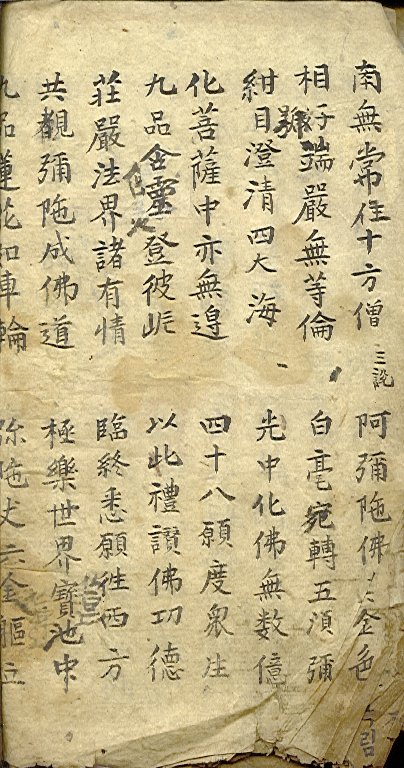 南無常住十方僧 三說 阿彌陁佛 金色
相好端嚴無等倫 白毫宛轉五湏彌
紺目澄清四大海 光中化佛無数億
化菩薩中亦無邉 四十八願度衆生
九品含靈登彼岸 以此禮讚佛功德
莊嚴法界諸有情 臨終悉願徃西方
共觀彌陁成佛道 極樂世界寶池中
九品蓮花如車輪 弥陁丈六金軀立